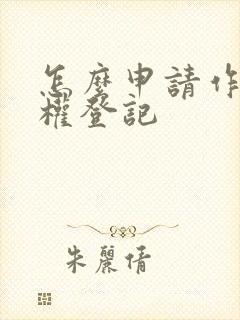 怎麼申請作
權登記
朱麗倩